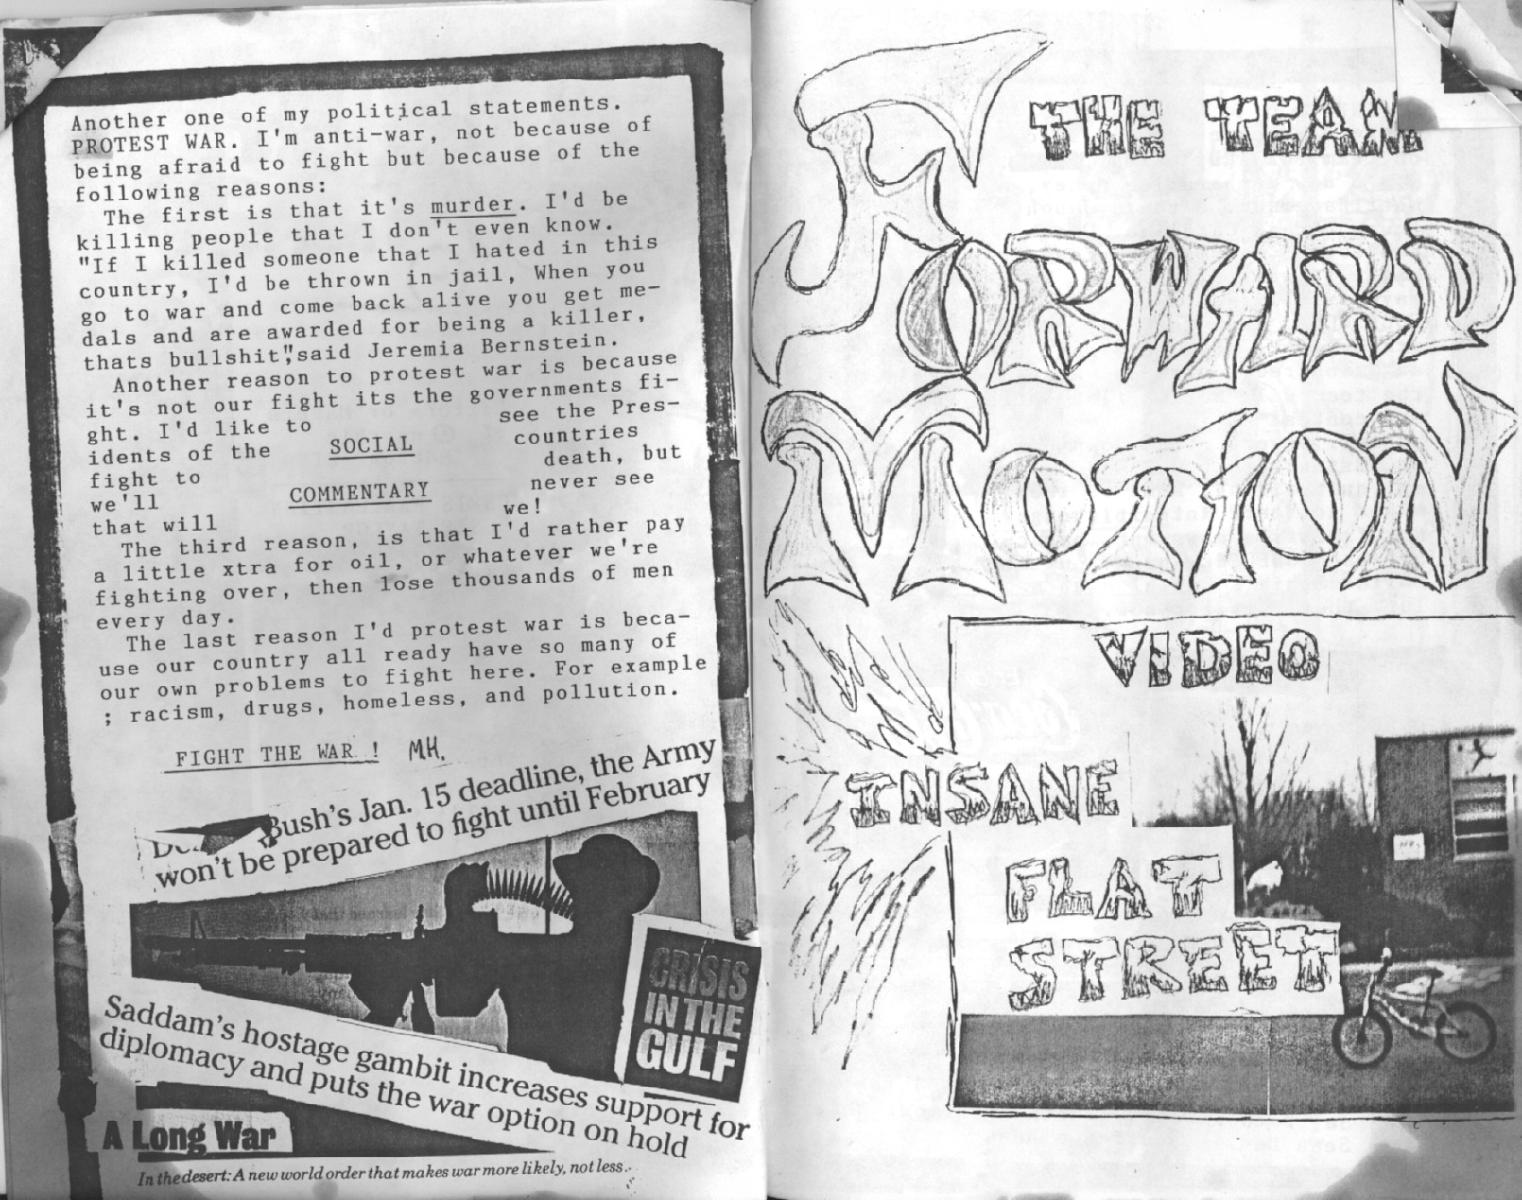 Another one of my political statements.
PROTEST WAR. I'm anti-war, not because of
being afraid to fight but because of the
following reasons:
The first is that it's murder. I'd be
killing people that I don't even know.
"If I killed someone that I hated in this
country, I'd be thrown in jail, When you
go to war and come back alive you get me-
dals and are awarded for being a killer,
thats bullshit",said Jeremia Bernstein.
Another reason to protest war is because
it's not our fight its the governments fi-
ght. I'd like to see the Pres-
idents of the countries
fight to death, but
we'll never see
that will we!
SOCIAL
COMMENTARY
The third reason, is that I'd rather pay
a little xtra for oil, or whatever we're
fighting over, then lose thousands of men
every day.
The last reason I'd protest war is beca-
use our country all ready have so many of
our own problems to fight here. For example
; racism, drugs, homeless, and pollution.
FIGHT THE WAR ! M.H.
Bush's Jan. 15 deadline, the Army
won't be prepared to fight until February
CRISIS
IN THE
GULF
Saddam's hostage gambit increases support for
diplomacy and puts the war option on hold
A Long War
In the desert: A new world order that makes war more likely, not less.
THE TEAM
FORWARD
MOTION
VIDEO
INSANE
FLAT
STREET